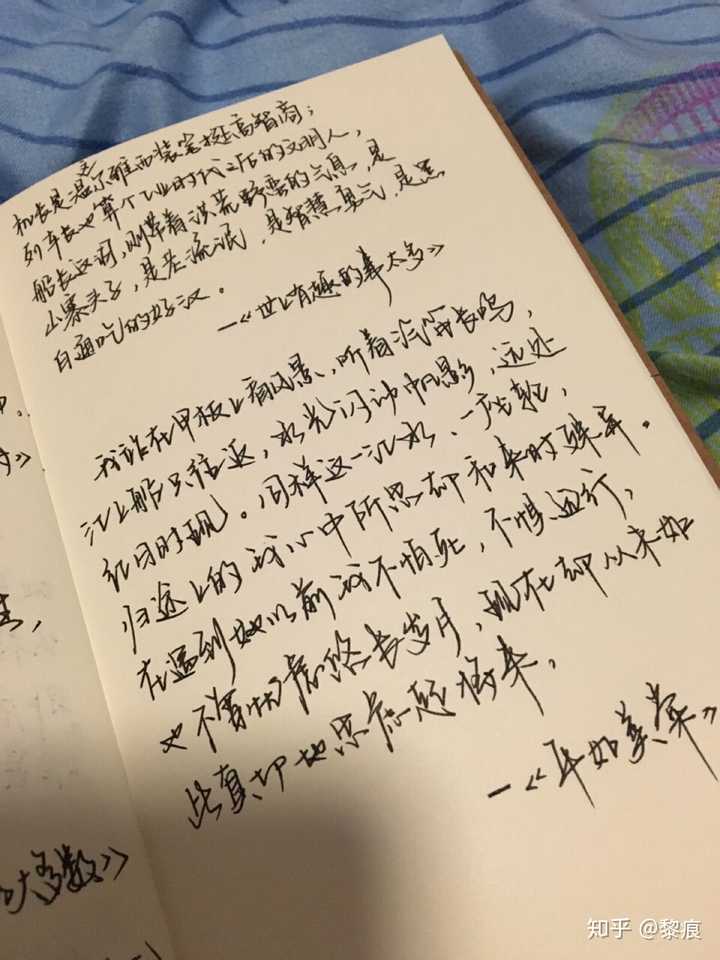 机长是温文尔雅而装笔挺高智商;
列车长也算个工业时代之后的文明人,
船长这词,则带着洪荒野蛮的气息,是
山寨头子,是老流氓,是智慧勇气,是黑
白通吃的好汉。
—《世上有趣的事太多》
我站在甲板上看风景,听着汽笛长鸣,
江上船只往返,水光闪动帆影,远处
红日时现。同样这一江水、一座轮,
归途上的我心中所思却和来时殊异。
在遇到她以前我不怕死,不惧远行,
也不曾忧虑悠长岁月,现在却从未如
此真切地思虑起将来,
—《平如美棠》
大多数》
知乎 @黎痕